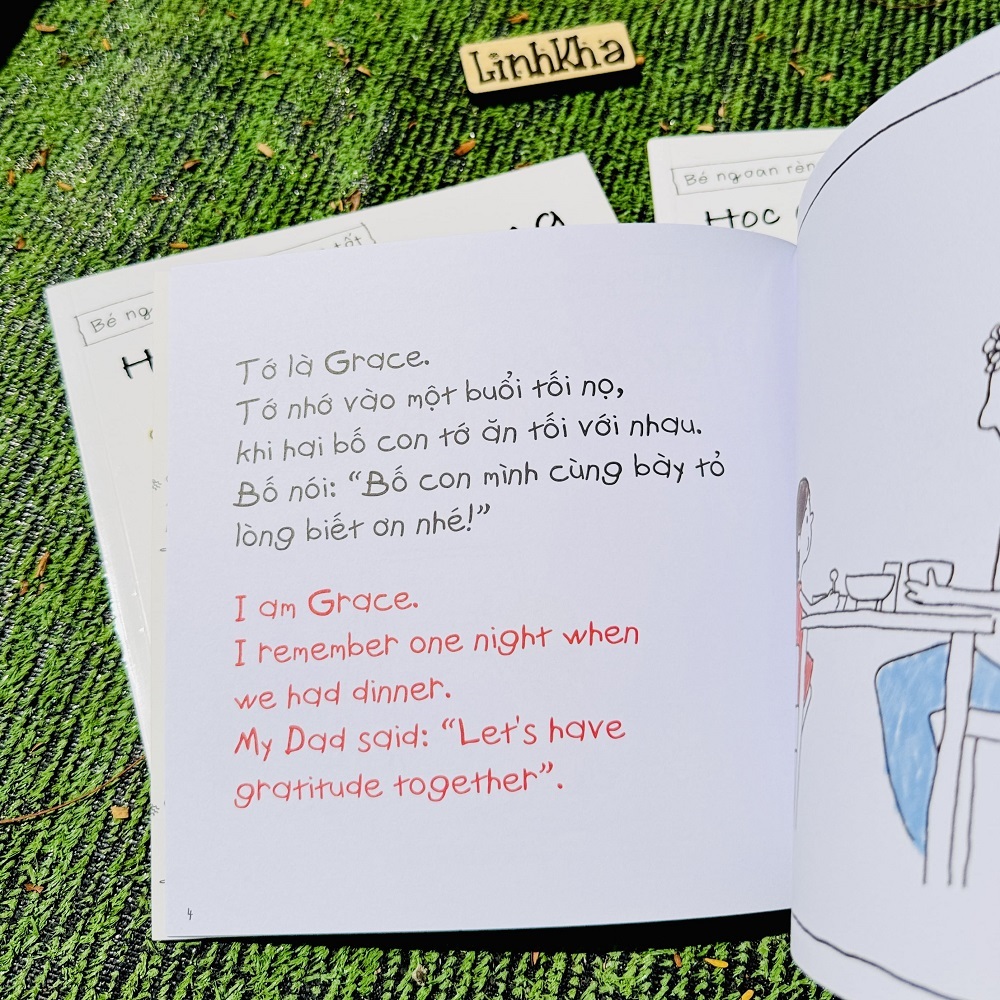 LinhKha
Bé ngoan rèn
Học
tốt
Bé ng
Tớ là Grace.
Tớ nhớ vào một buổi tối nọ,
khi hai bố con tớ ăn tối với nhau.
Bố nói: “Bố con mình cùng bày tỏ
lòng biết ơn nhé!”
I am Grace.
I remember one night when
we had dinner.
My Dad said: “Let's have
gratitude together”.
4